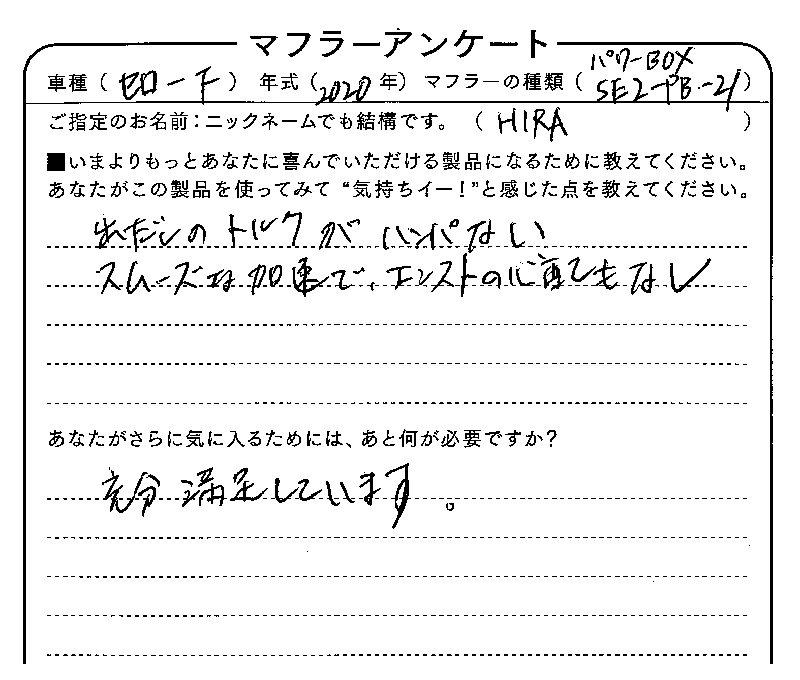 マフラーアンケート
車種（セロード）年式（2020年）マフラーの種類（パワーBOX SE2-PB-21）
ご指定のお名前：ニックネームでも結構です。（HIRA）
■いまよりもっとあなたに喜んでいただける製品になるために教えてください。
あなたがこの製品を使ってみて“気持ちイー！”と感じた点を教えてください。
出だしのトルクがハンパない
スムーズな加速で、エンストの心配もなし
あなたがさらに気に入るためには、あと何が必要ですか？
充分満足しています。